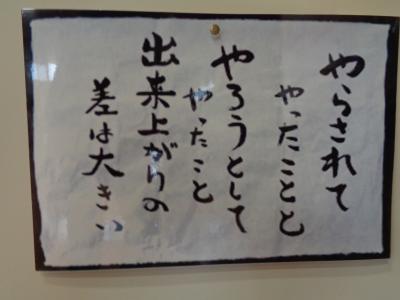 やらされて
やったことと
やろうとして
やったこと
出来上がりの
差は大きい